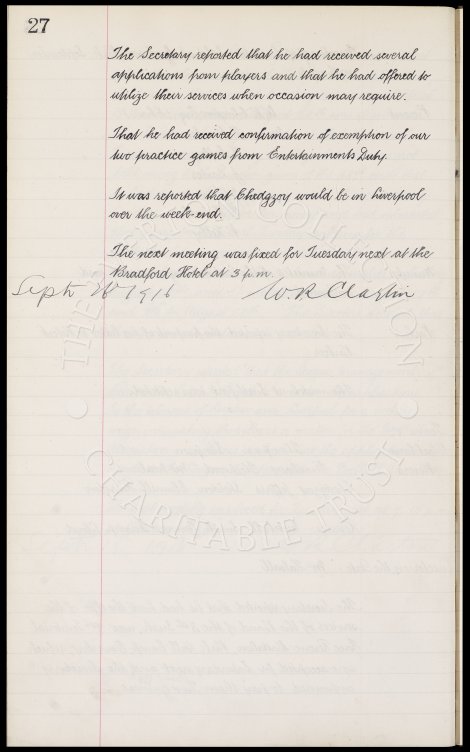 27
The Secretary reported that he had received several
applications from players and that he had offered to
utilize their services when occasion may require.
That he had received confirmation of exemption of our
two practice games from Entertainments Duty.
It was reported that Chedgzoy would be in Liverpool
over the week-end.
The next meeting was fixed for Tuesday next at the
Bradford Hotel at 3 p.m.
Sept 26 1916 W. R. Clayton
THE EVERTON COLLECTION
CHARITABLE TRUST